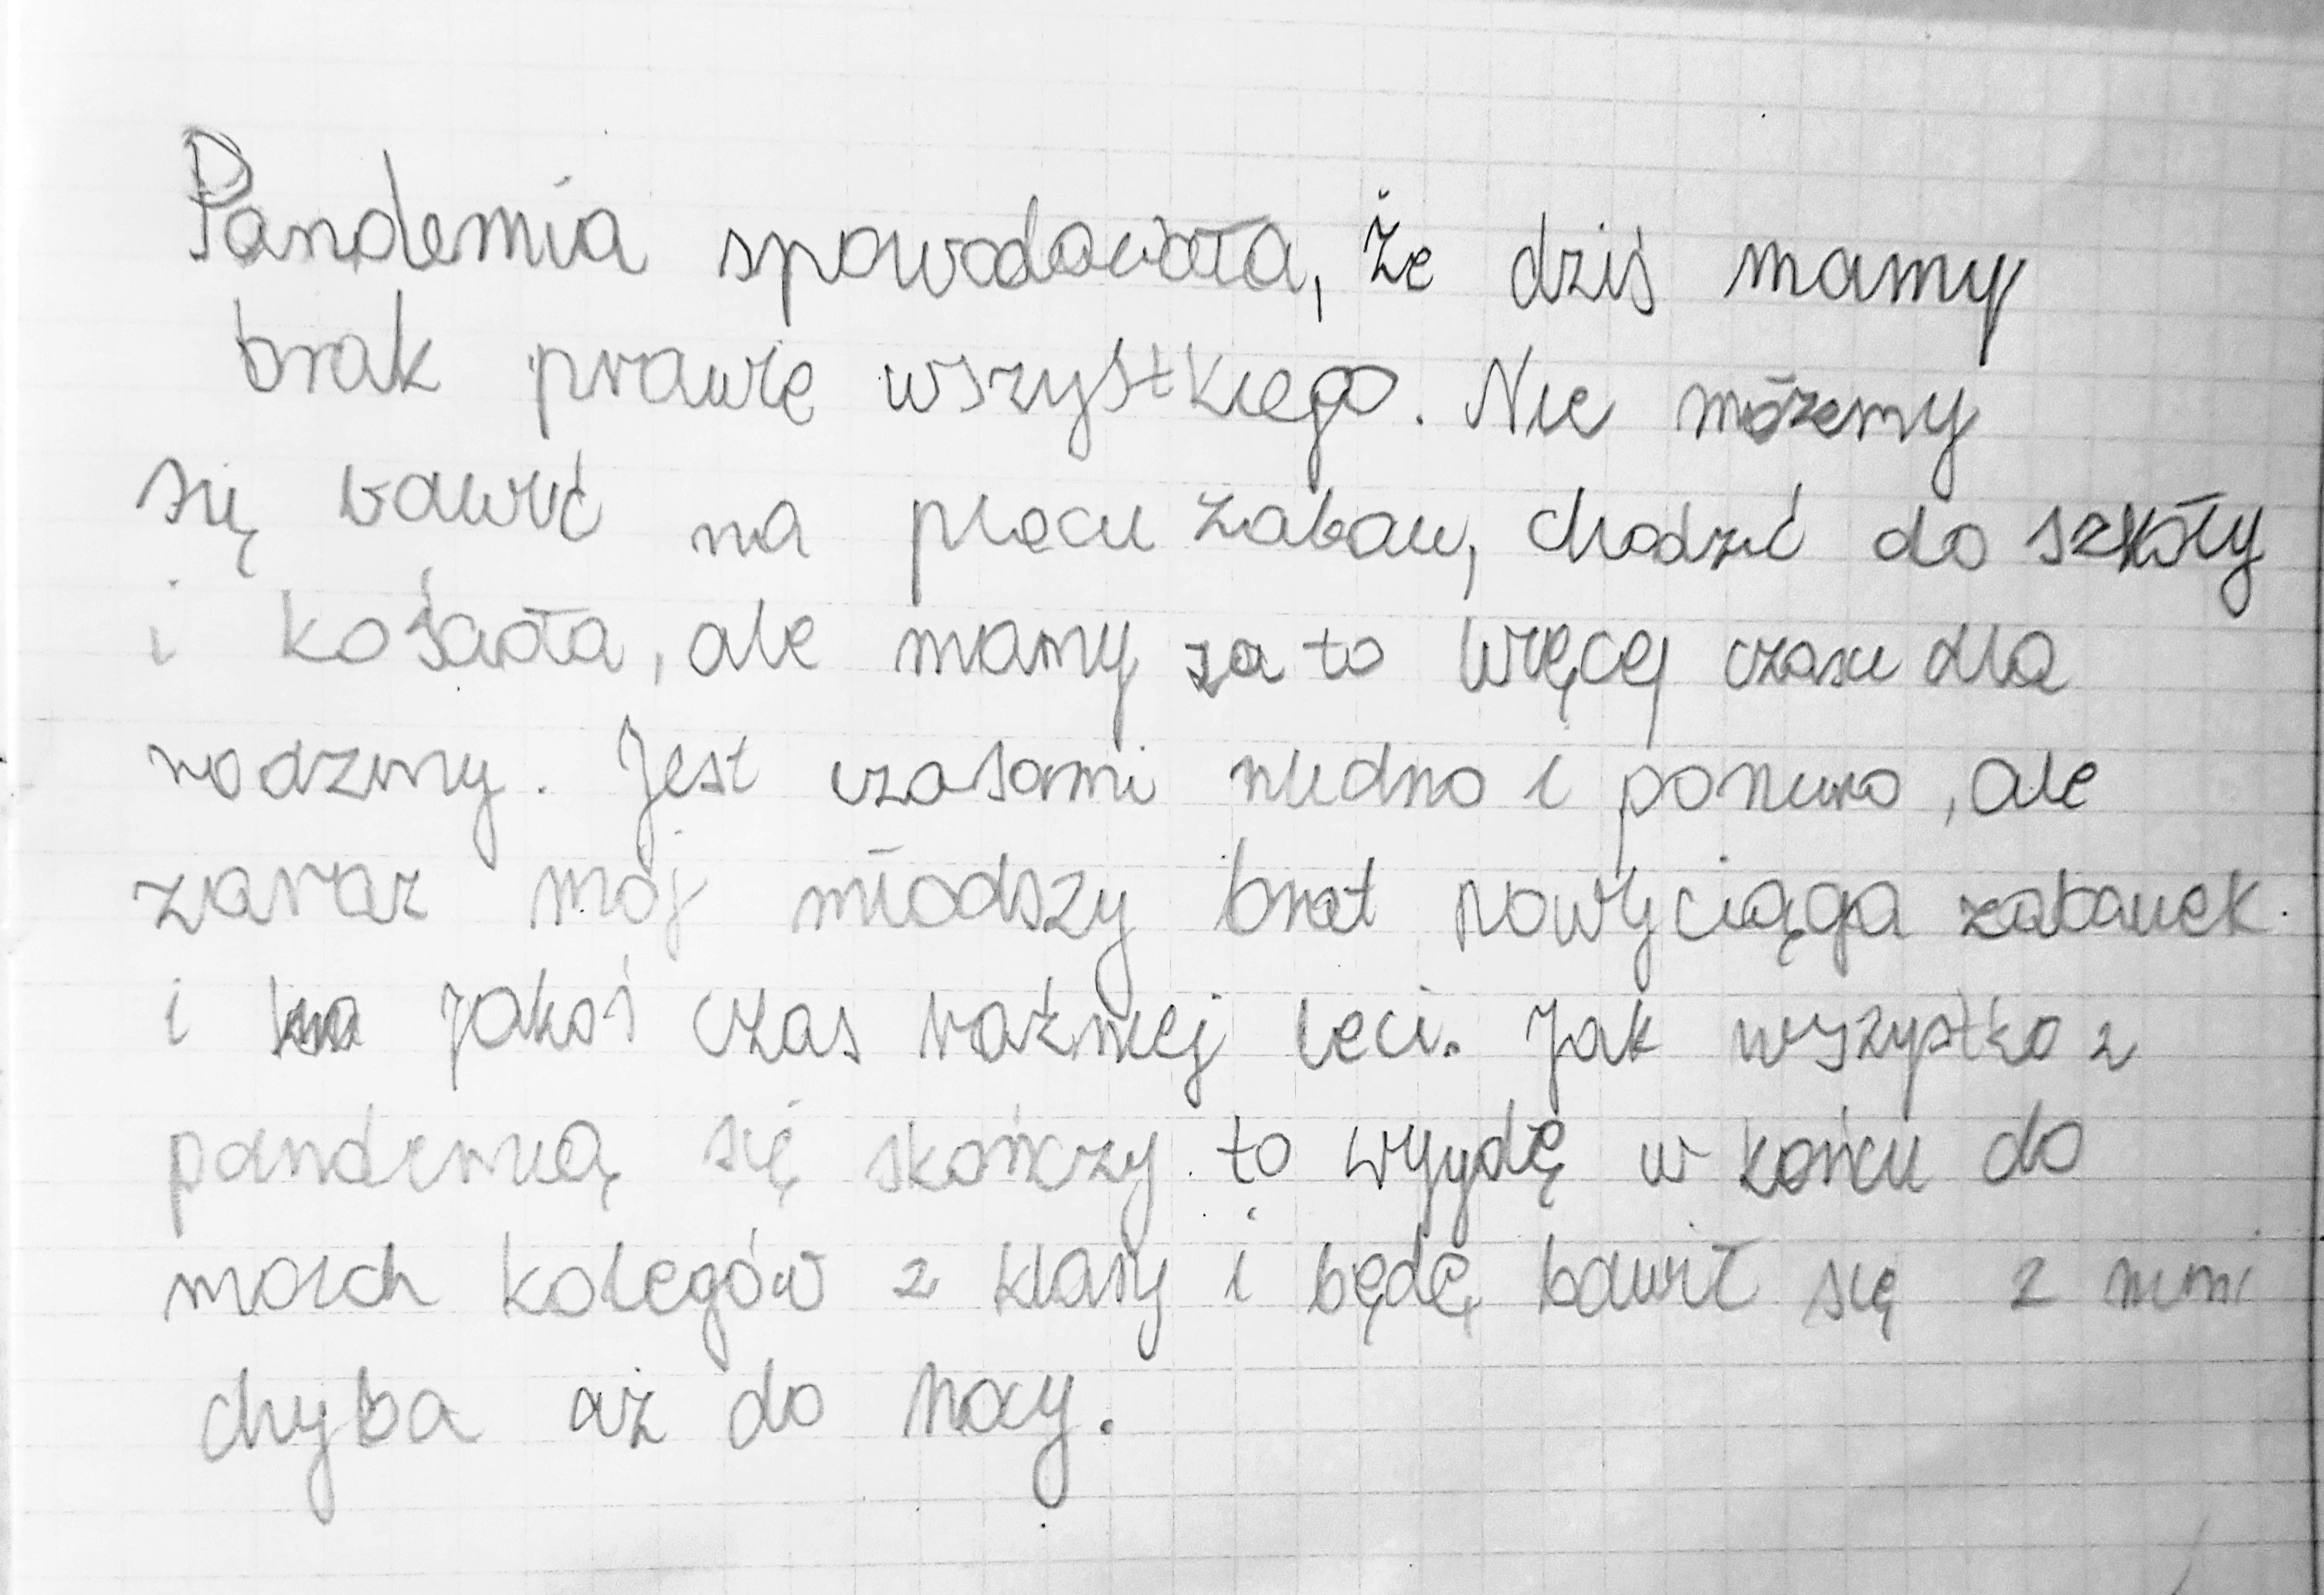 Pandemia spowodowała, że dziś mamy
brak prawie wszystkiego. Nie możemy
się bawić na placu zabaw, chodzić do szkoły
i kościoła, ale mamy za to więcej czasu dla
rodziny. Jest czasami nudno i ponuro, ale
zaraz mój młodszy brat powyciąga zabawek
i jakoś czas raźniej leci. Jak wszystko z
pandemią się skończy to wyjdę w końcu do
moich kolegów z klasy i będę bawił się z nimi
chyba aż do nocy.